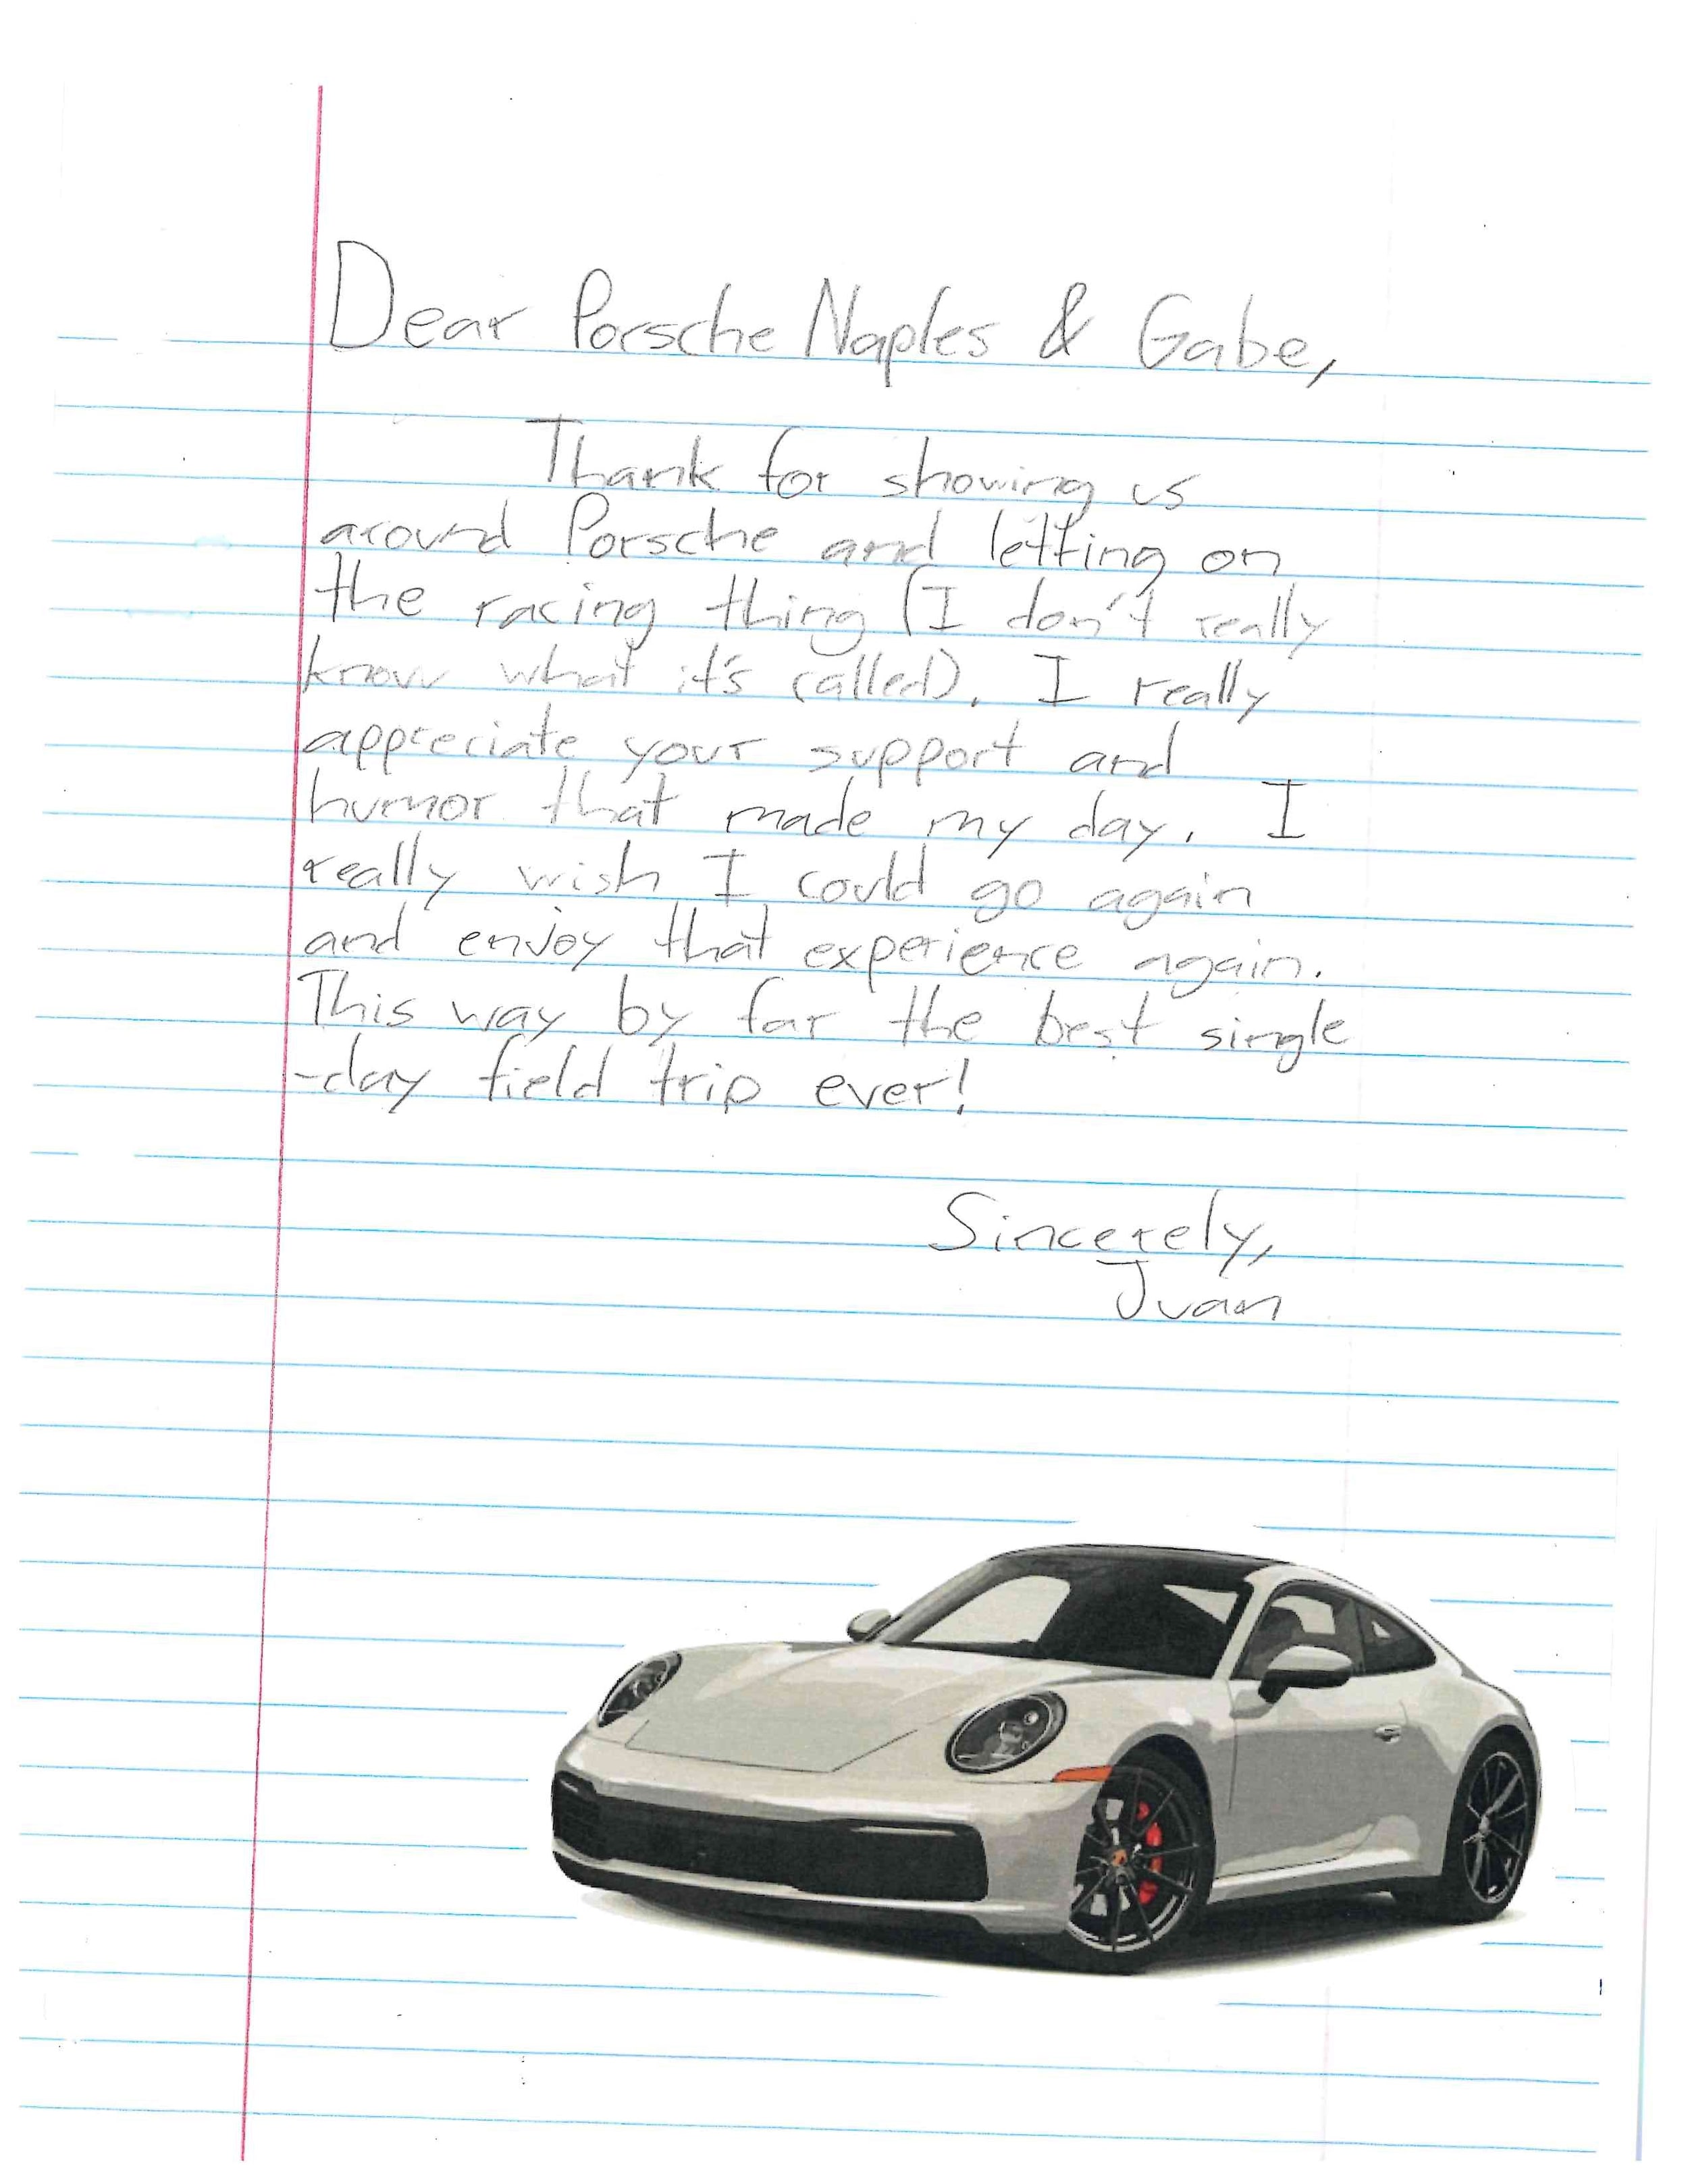 Dear Porsche Naples & Gabe,
Thank for showing us
around Porsche and letting on
the racing thing (I don't really
know what it's called). I really
appreciate your support and
humor that made my day. I
really wish I could go again
and enjoy that experience again.
This way by far the best single
-day field trip ever!
Sincerely,
Juan